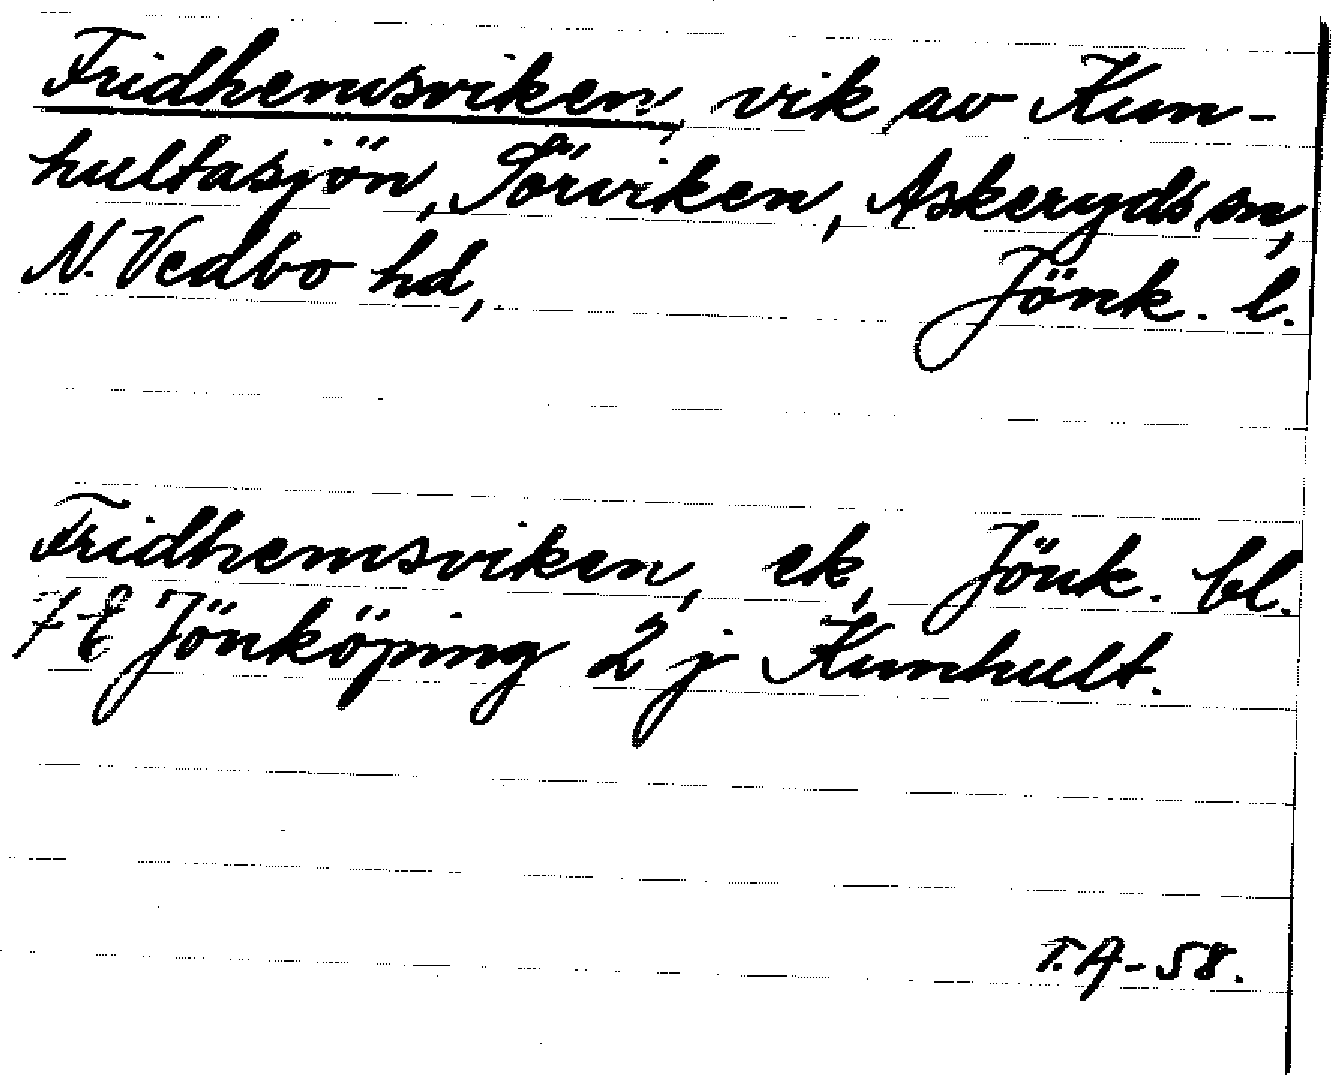 Fridhemsviken, vik av Kum-
hultasjön, Sörviken, Askeryds sn,
N. Vedbo hd, Jönk. l.
Fridhemsviken, ek, Jönk. bl.
7 E Jönköping 2 j Kumhult.
T.A-58.